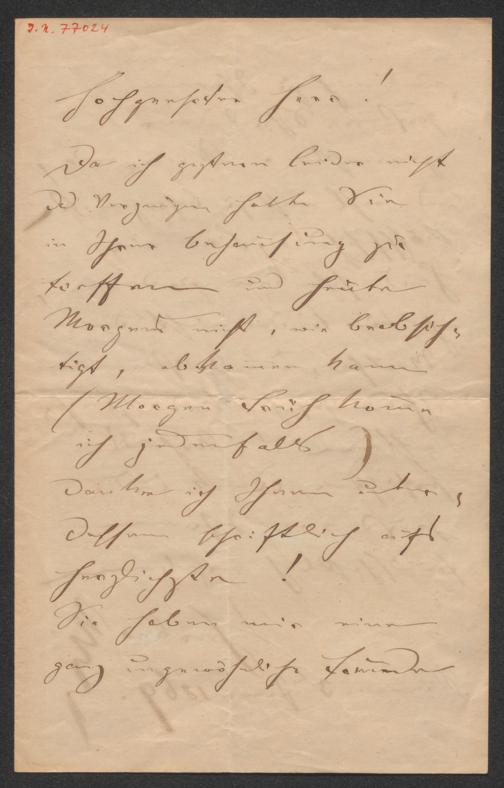 J.N. 77024
Hochgeehrter Herr!
Da ich gestern leider nicht
das Vergnügen hatte Sie
in Ihrer Behausung zu
treffen und heute
Morgens nicht, wie beabsich-
tigt, abkommen kann
(Morgen Früh komme
ich jedenfalls)
danke ich Ihnen unter-
dessen schriftlich aufs
herzlichste!
Sie haben mir eine
ganz ungewöhnliche Freude